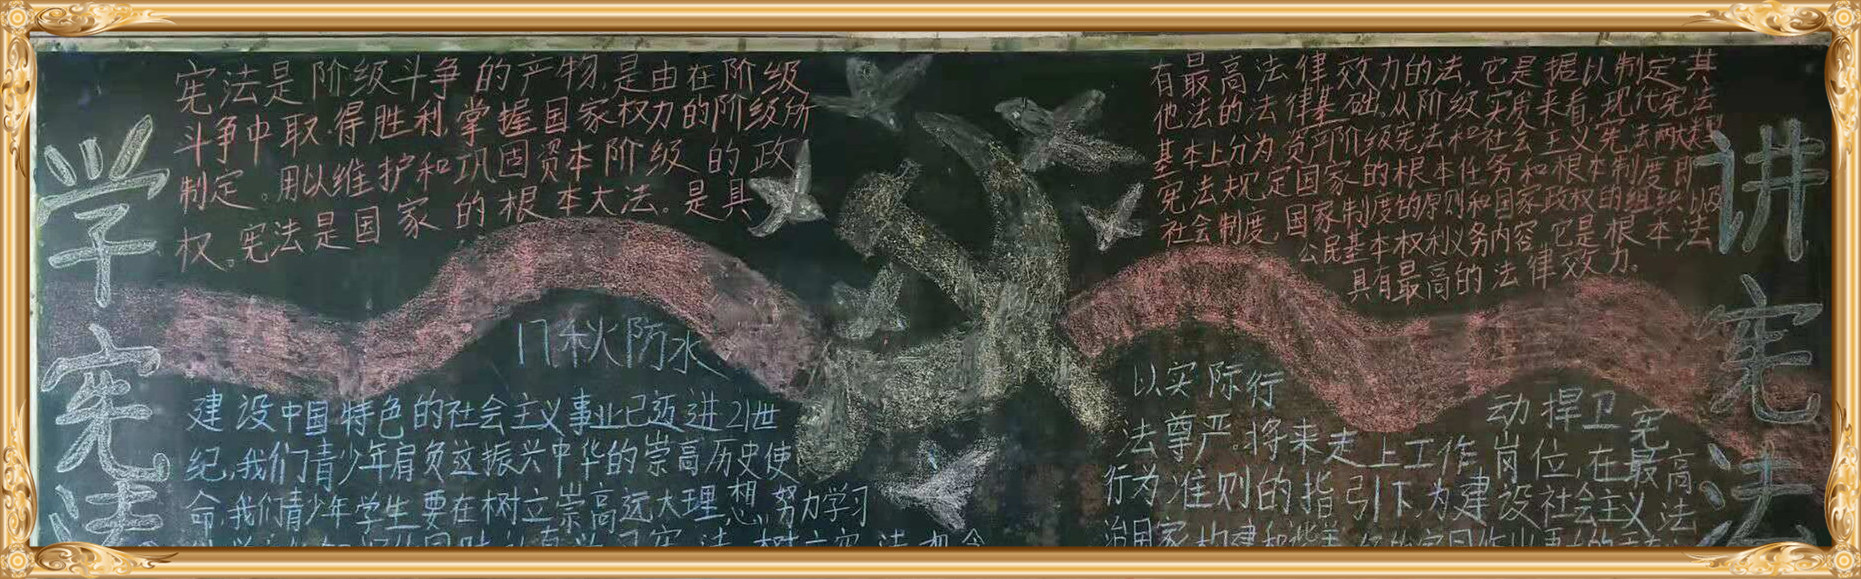 学宪法
宪法是阶级斗争的产物,是由在阶级
斗争中取得胜利掌握国家权力的阶级所
制定。用以维护和巩固资本阶级的政
权。宪法是国家的根本大法。是具
有最高法律效力的法,它是据以制定其
他法的法律基础。从阶级实质来看,现代宪法
基本上分为资产阶级宪法和社会主义宪法两大类型
宪法规定国家的根本任务和根本制度即
社会制度,国家制度的原则和国家政权的组织以及
公民基本权利义务内容,它是根本法
具有最高的法律效力。
讲宪法
17秋防水
建设中国特色的社会主义事业已迈进21世
纪,我们青少年肩负这振兴中华的崇高历史使
命,我们青少年学生要在树立崇高远大理想,努力学习
以实际行
动捍卫宪
法尊严。将来走上工作岗位,在最高
行为准则的指引下,为建设社会主义法